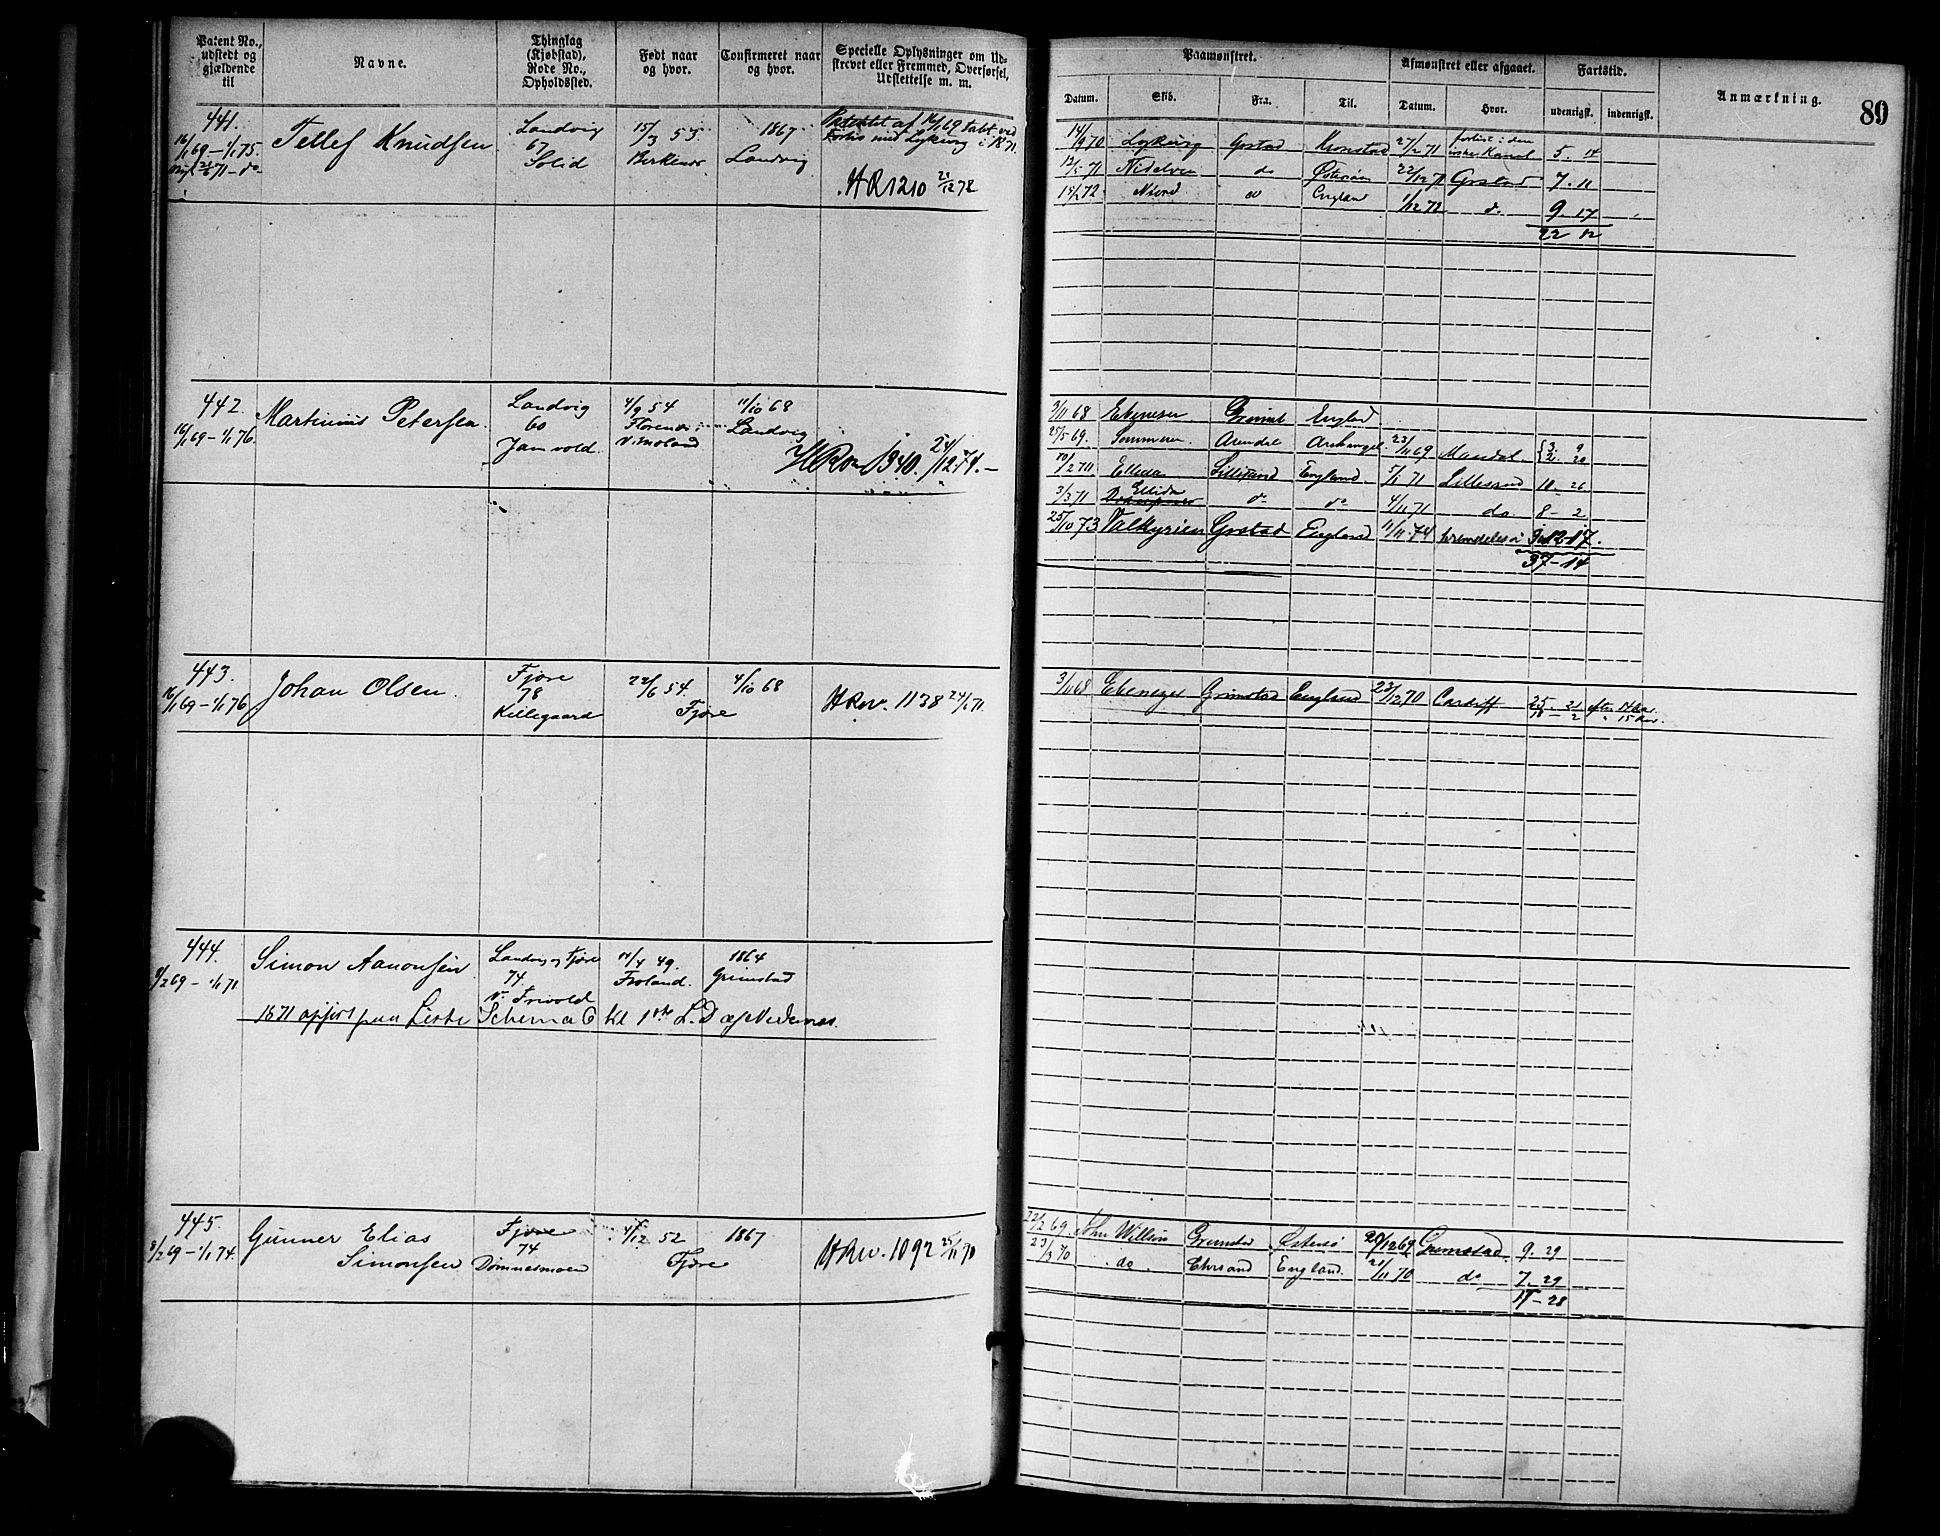 Patent No., udstedt og gjældende til
Navne.
Thinglag (Kjøbstad), Rode No., Opholdssted.
Født naar og hvor.
Confirmeret naar og hvor.
Specielle Oplysninger om Udstrevet eller Fremmed, Overførsel, Udslettelse m. m.
Paamønstret.
Afmønstret eller afgaaet.
Fartstid.
Anmærkning.
89
Datum.
Skib.
Fra.
Til.
Datum.
Hvor.
udenrigst.
indenrigst.
441.
16/1 69 – 1/1 75.
Tellef Knudsen
Landvig
67
Solid
15/3 53
Birkenæs
1867
Landvig
Patentet af 16/1 69 tabt ved
Forlis med Lykurg i 1871.
HR 1210 21/12 72
14/9 70 Lykurg Gstad Kronstad 27/2 71 forlist i den
Kanal 5. 14
12/5 71 Nidelven do Østersøen 22/12 71 Grstad 7. 11
14/2 72 Njord do England 1/12 72 do 9. 17
22 12
442.
16/1 69 – 1/1 76.
Martinius Petersen
Landvig
60
Jamvold.
4/9 54
V. Moland
11/10 68
Landvig
HRov 1340. 24/12 74. –
3/11 68 Ebeneser Grimst England
25/5 69. Arendal Archangel 23/11 69 Mandal 3 9
2 20
10/2 70 Ellida Lillesand England 5/1 71 Lillesand 10 26
3/3 71 Ellida do do 4/11 71 do. 8 – 2
25/10 73 Valkyrien Grstad England 11/11 74 12 17.
37 – 14
443.
16/1 69 – 1/1 76
Johan Olsen.
Fjære
78
Killegaard
22/6 54.
Fjære
4/10 68
HRov. 1138 24/1 71.
3/11 68 Ebenezer Grimstad England 23/12 70 Cardiff 25 – 21 efter 14 Aar
18 – 2 " 15 Aar.
444.
9/2 69 – 1/1 71
Simon Aanonsen
Landvig og Fjære
74.
V. Frivold
14/4 49.
Froland.
1864
Grimstad
1871 opført paa Liste Schema 6 til 1ste L.D. af Nedenæs.
445.
9/2 69 – 1/1 74.
Gunner Elias
Simonsen
Fjære
74
Dømmesmoen
4/12 52
Fjære
1867
HRov. 1092 25/11 70
22/2 69 John Willson Grimstad Østersø 20/12 69 Grimstad 9. 29
23/3 70 do. Chrsand England. 21/11 70 do 7. 29
17 – 28